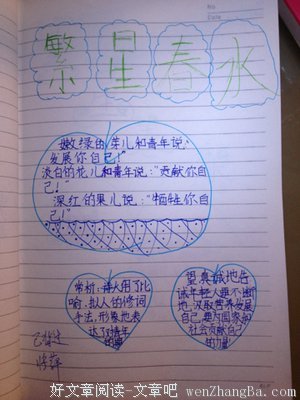 No
Date
繁星春水
嫩绿的芽儿和青年说:
发展你自己!"
淡白的花儿和青年说:"贡献你自
己!"
深红的果儿说:"牺牲你自
己!"
赏析:诗人用了比
喻、拟人的修辞
手法,形象地表
达了对青年
望真诚地告
诫年轻人要不断
地汲取营养发展
自己,要为国家和
社会贡献自己
的力量
好文章阅读-文章吧 wenZhangBa.com